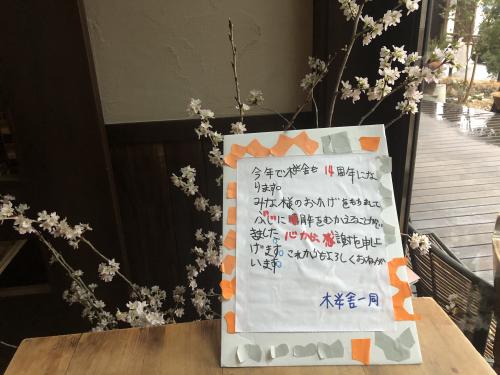 今年で木半舎も 14周年にな
ります。
みな様のおかげをもちまして
ぶじに 周年をむかえることがで
きました。心から、感謝を申し上
げます。これからもよろしくおねが
います。
木半舎一同